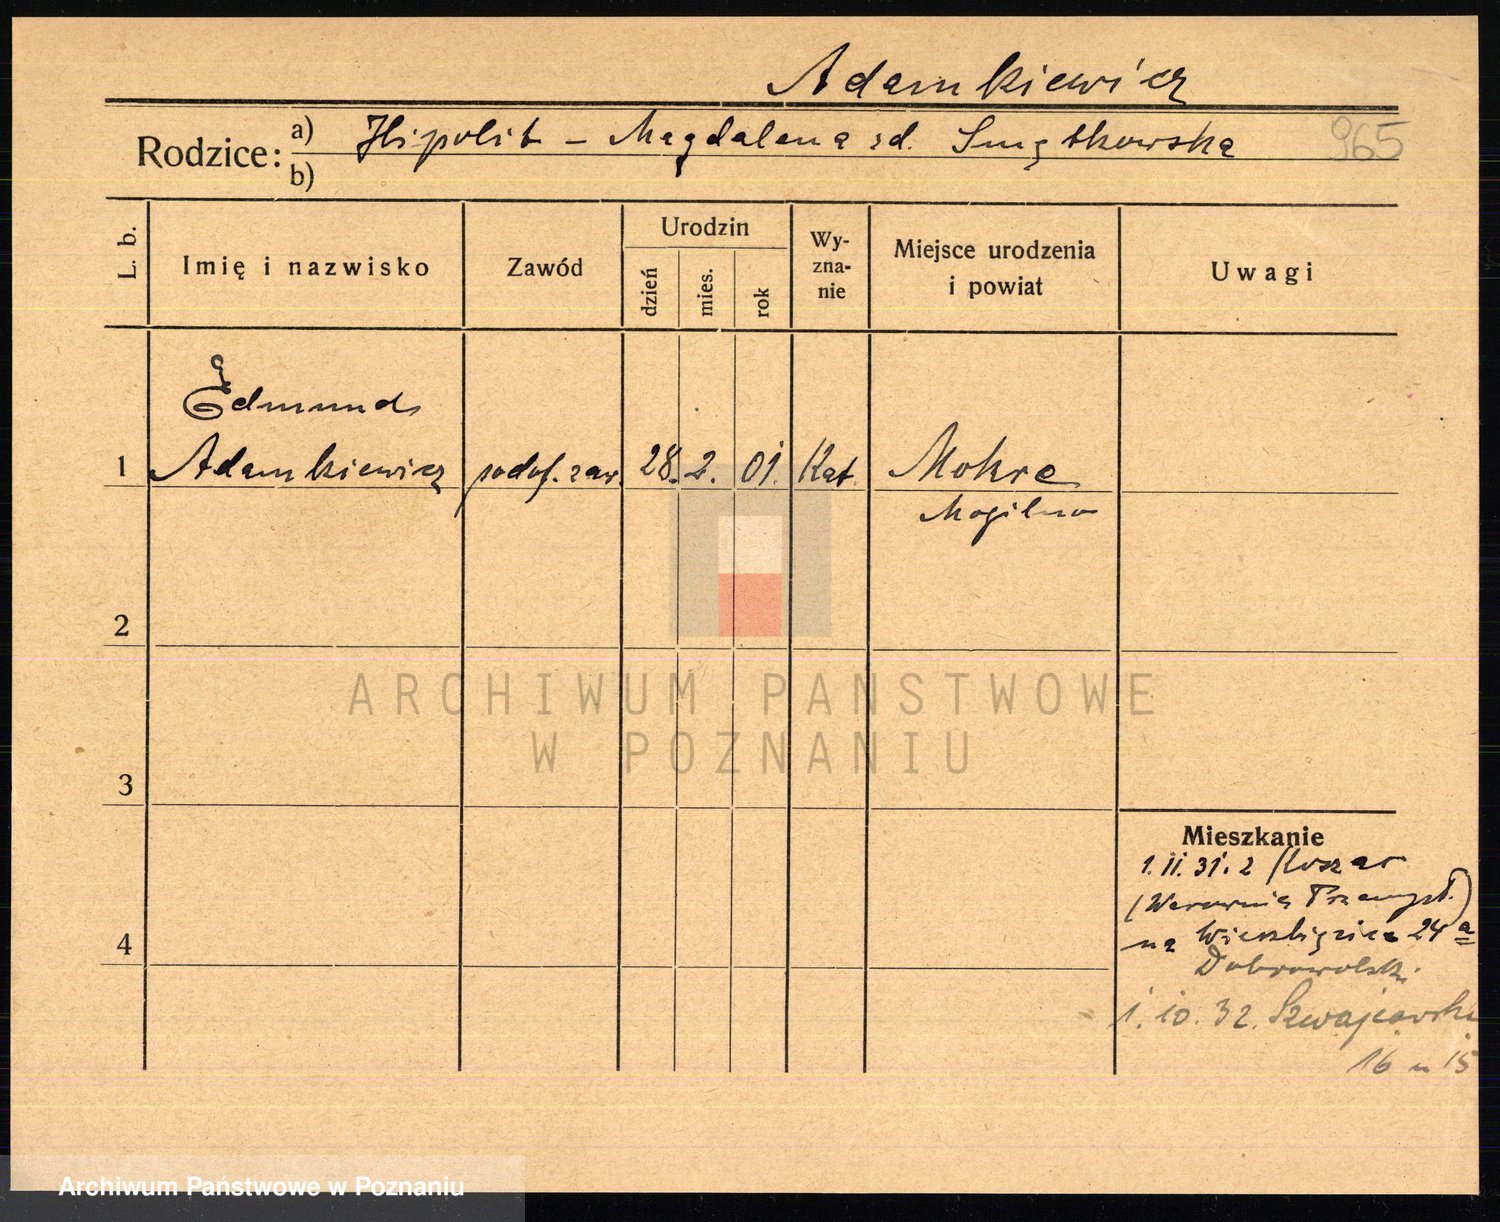 Adamkiewicz
Rodzice: a) Hipolit – Magdalena zd. Smętkowska 965
b)
L. b. Imię i nazwisko Zawód Urodzin dzień mies. rok Wyzna-nie Miejsce urodzenia i powiat Uwagi
Edmund
1 Adamkiewicz podof. zaw. 28. 2. 01. Kat. Mokre
Mogilno
2
ARCHIWUM PAŃSTWOWE
W POZNANIU
3
Mieszkanie
1. II. 31. z Koszar
(Warownia Przemysł.)
4
na Wierzbięcice 24a
Dobrowolski
1. 10. 32. Szwajcarska
16 m 15
Archiwum Państwowe w Poznaniu